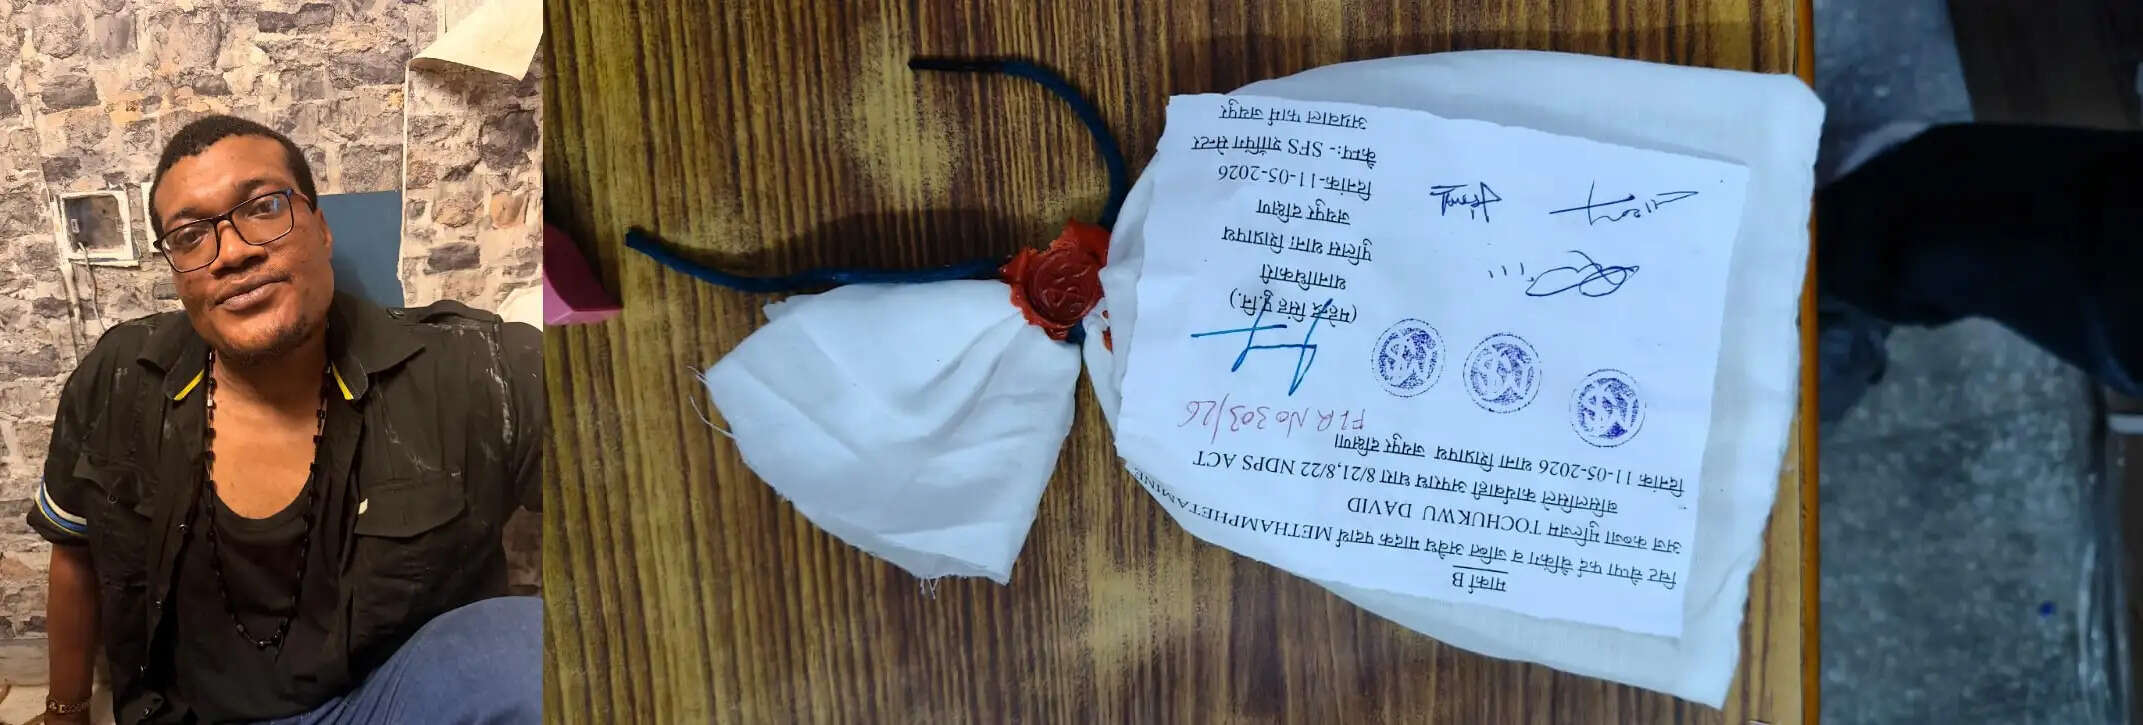 मार्का B
चिट चेपा फर्द चैकिंग व जब्ति अवैध मादक पदार्थ METHAMPHETAMINE
अज कब्जा मुल्जिम TOCHUKWU DAVID
बसिलसिले कार्यवाही अपराध धारा 8/21,8/22 NDPS ACT
दिनांक 11-05-2026 थाना शिप्रापथ जयपुर दक्षिण
FIR No 303/26
(महेन्द्र सिंह पु.नि.)
थानाधिकारी
पुलिस थाना शिप्रापथ
जयपुर दक्षिण
दिनांक-11-05-2026
कैम्प:- SFS शॉपिंग सेन्टर
अग्रवाल फार्म जयपुर